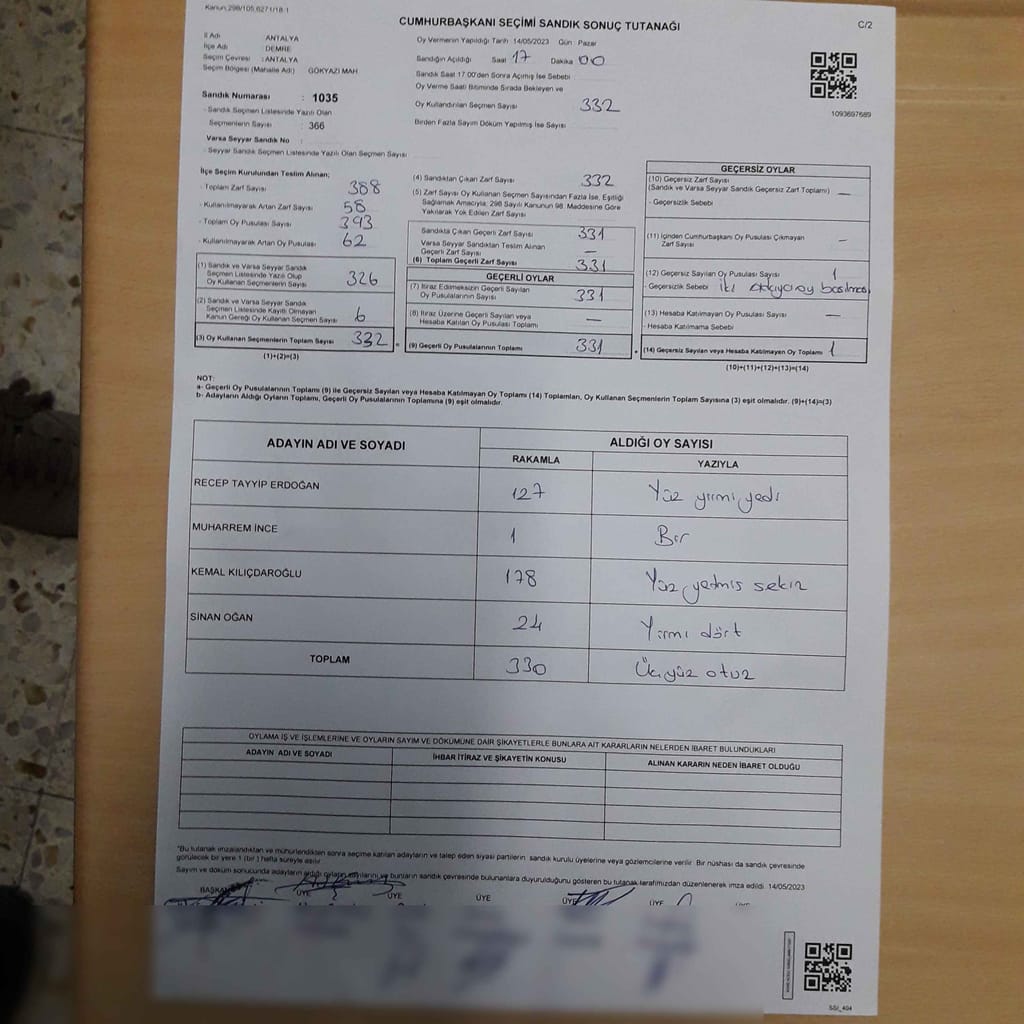 Kanun:298/105,6271/18-1
CUMHURBAŞKANI SEÇİMİ SANDIK SONUÇ TUTANAĞI
C/2
İl Adı : ANTALYA
İlçe Adı : DEMRE
Seçim Çevresi : ANTALYA
Seçim Bölgesi (Mahalle Adı) GÖKYAZI MAH
Sandık Numarası : 1035
- Sandık Seçmen Listesinde Yazılı Olan
Seçmenlerin Sayısı : 366
Varsa Seyyar Sandık No :
- Seyyar Sandık Seçmen Listesinde Yazılı Olan Seçmen Sayısı
Oy Vermenin Yapıldığı Tarih :14/05/2023 Gün : Pazar
Sandığın Açıldığı Saat 17 Dakika 00
Sandık Saat 17.00'den Sonra Açımış İse Sebebi
Oy Verme Saati Bitiminde Sırada Bekleyen ve
Oy Kullandırılan Seçmen Sayısı 332
Birden Fazla Sayım Döküm Yapılmış İse Sayısı
1093697689
İlçe Seçim Kurulundan Teslim Alınan;
- Toplam Zarf Sayısı 388
- Kullanılmayarak Artan Zarf Sayısı 58
- Toplam Oy Pusulası Sayısı 393
- Kullanılmayarak Artan Oy Pusulası 62
(1) Sandık ve Varsa Seyyar Sandık
Seçmen Listesinde Yazılı Olup
Oy Kullanan Seçmenlerin Sayısı 326
(2) Sandık ve Varsa Seyyar Sandık
Seçmen Listesinde Kayıtlı Olmayan
Kanun Gereği Oy Kullanan Seçmen Sayısı 6
(3) Oy Kullanan Seçmenlerin Toplam Sayısı 332
(1)+(2)=(3)
(4) Sandıktan Çıkan Zarf Sayısı 332
(5) Zarf Sayısı Oy Kullanan Seçmen Sayısından Fazla İse, Eşitliği
Sağlamak Amacıyla, 298 Sayılı Kanunun 98. Maddesine Göre
Yakılarak Yok Edilen Zarf Sayısı
Sandıkta Çıkan Geçerli Zarf Sayısı 331
Varsa Seyyar Sandıktan Teslim Alınan
Geçerli Zarf Sayısı —
(6) Toplam Geçerli Zarf Sayısı 331
GEÇERLİ OYLAR
(7) İtiraz Edilmeksizin Geçerli Sayılan
Oy Pusulalarının Sayısı 331
(8) İtiraz Üzerine Geçerli Sayılan veya
Hesaba Katılan Oy Pusulası Toplamı —
(9) Geçerli Oy Pusulalarının Toplamı 331
GEÇERSİZ OYLAR
(10) Geçersiz Zarf Sayısı
(Sandık ve Varsa Seyyar Sandık Geçersiz Zarf Toplamı) —
- Geçersizlik Sebebi
(11) İçinden Cumhurbaşkanı Oy Pusulası Çıkmayan
Zarf Sayısı —
(12) Geçersiz Sayılan Oy Pusulası Sayısı 1
- Geçersizlik Sebebi iki oy basılması
(13) Hesaba Katılmayan Oy Pusulası Sayısı —
- Hesaba Katılmama Sebebi
(14) Geçersiz Sayılan veya Hesaba Katılmayan Oy Toplamı 1
(10)+(11)+(12)+(13)=(14)
NOT:
a- Geçerli Oy Pusulalarının Toplamı (9) ile Geçersiz Sayılan veya Hesaba Katılmayan Oy Toplamı (14) Toplamları, Oy Kullanan Seçmenlerin Toplam Sayısına (3) eşit olmalıdır. (9)+(14)=(3)
b- Adayların Aldığı Oyların Toplamı, Geçerli Oy Pusulalarının Toplamına (9) eşit olmalıdır.
ADAYIN ADI VE SOYADI ALDIĞI OY SAYISI
RAKAMLA YAZIYLA
RECEP TAYYİP ERDOĞAN 127 Yüz yirmi yedi
MUHARREM İNCE 1 Bir
KEMAL KILIÇDAROĞLU 178 Yüz yetmiş sekiz
SİNAN OĞAN 24 Yirmi dört
TOPLAM 330 Üçyüz otuz
OYLAMA İŞ VE İŞLEMLERİNE VE OYLARIN SAYIM VE DÖKÜMÜNE DAİR ŞİKAYETLERLE BUNLARA AİT KARARLARIN NELERDEN İBARET BULUNDUKLARI
ADAYIN ADI VE SOYADI İHBAR İTİRAZ VE ŞİKAYETİN KONUSU ALINAN KARARIN NEDEN İBARET OLDUĞU
"Bu tutanak imzalandıktan ve mühürlendikten sonra seçime katılan adayların ve talep eden siyasi partilerin sandık kurulu üyelerine veya gözlemcilerine verilir. Bir nüshası da sandık çevresinde
görülecek bir yere 1 (bir ) hafta süreyle asılır.
Sayım ve döküm sonucunda adayların aldığı oyların sayılarını ve bunların sandık çevresinde bulunanlara duyurulduğunu gösteren bu tutanak tarafımızdan düzenlenerek imza edildi. 14/05/2023
BAŞKAN ÜYE ÜYE ÜYE ÜYE ÜYE
SSİ_404